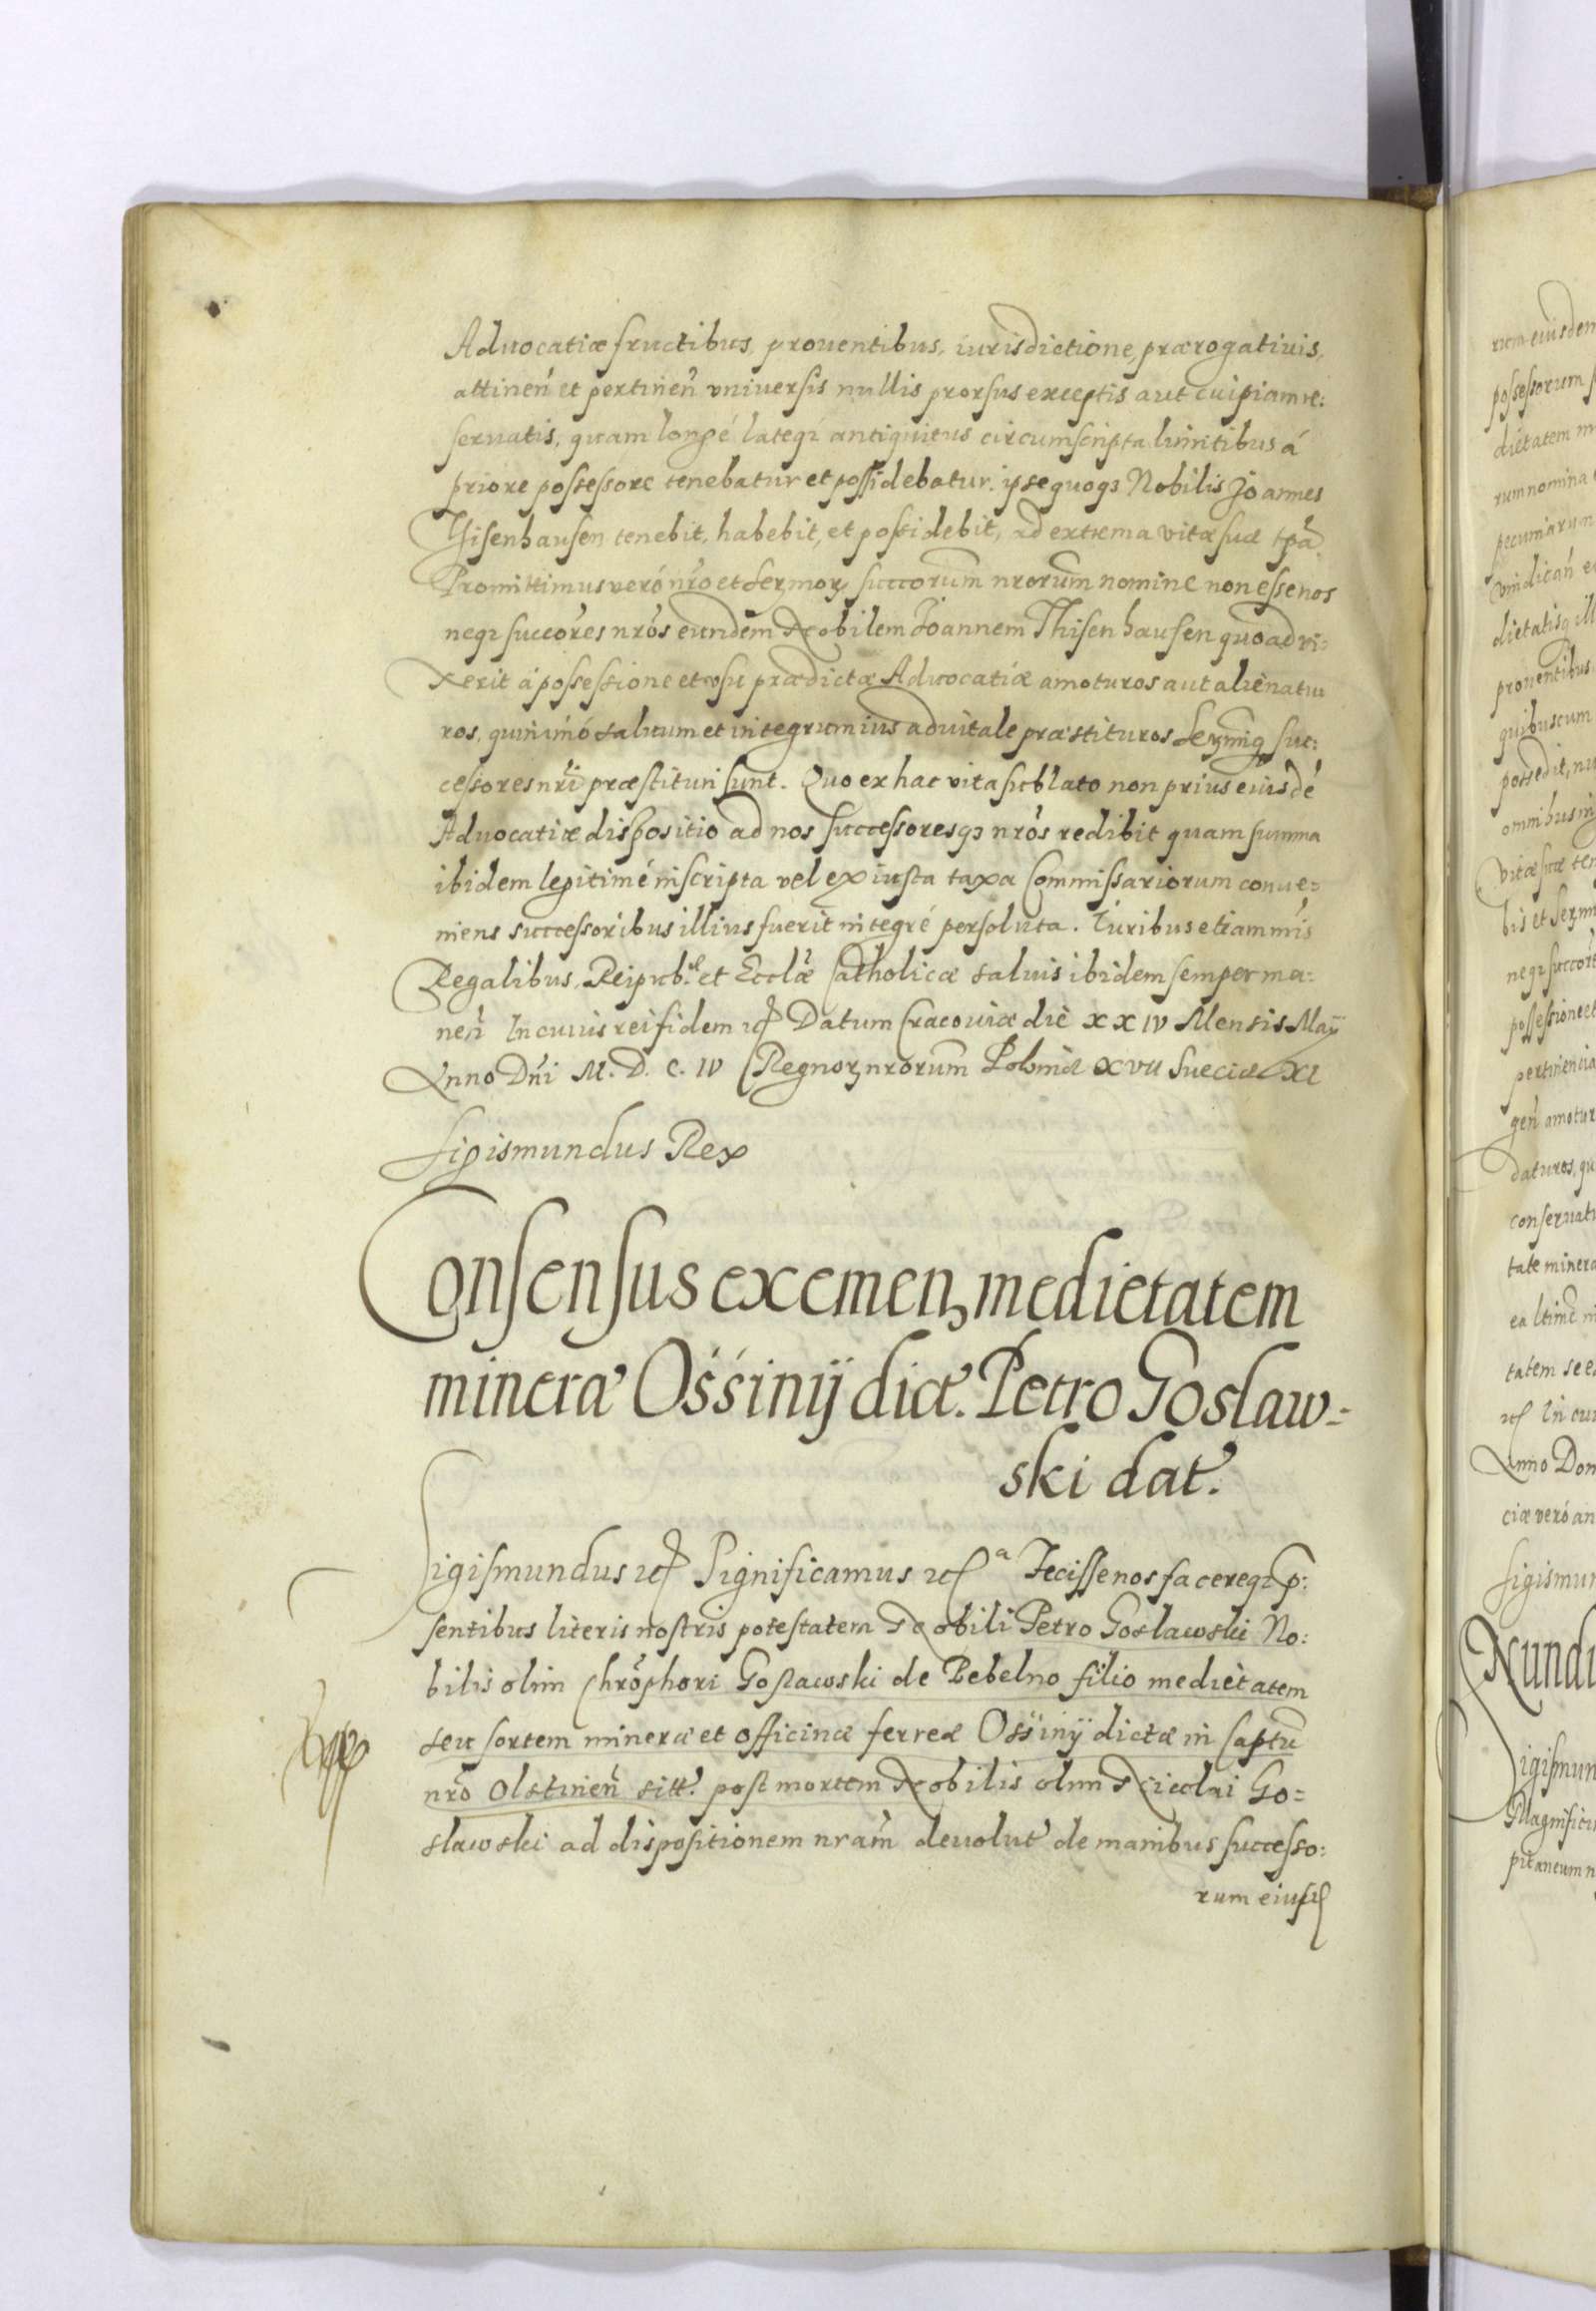 Aduocatiæ fructibus, prouentibus, iurisdictione, prærogatiuis,
attineñ et pertineñ vniuersis nullis prorsus exceptis aut cuipiam re:
seruatis, quam longé lateqꝫ antiquitus circumscripta limitibus á
priore possessore tenebatur et possidebatur. ipse quoqꝫ Nobilis Joannes
Thisenhausen tenebit, habebit, et possidebit, ad extrema vitæ suæ tp̃a.
Promittimus veró nr̃o et Serm̃orꝝ succorum nrorum nomine non esse nos
neqꝫ succores nrõs eundem Nobilem Joannem Thisenhausen quoad vi=
xerit á possessione et vsu prædictæ Aduocatiæ amoturos aut alienatu
ros, quinimó saluum et integrum ius aduitale præstituros Sermiq suc:
cessores nr̃i præstituri sunt. Quo ex hac vita sublato non prius eiusdé
Aduocatiæ dispositio ad nos successoresqꝫ nrõs redibit quam summa
ibidem legitimé inscripta vel ex iusta taxa Commissariorum conue=
niens successoribus illius fuerit integré persoluta. Iuribus etiam nr̃is
Regalibus, Reipub. et Eccl̃æ Catholicæ saluis ibidem semper ma:
neñ In cuius rei fidem ꝛc Datum Cracouiæ die XXIV Mensis Maÿ
Anno Dñi M. D. C. IV Regnorꝝ nrorum Poloniæ XVII Sueciæ XI
Sigismundus Rex
Consensus exemenꝫ medietatem
mineræ Ośśinÿ dict. Petro Goslaw=
ski dat.
Sigismundus ꝛc Significamus ꝛcª Fecisse nos facereqꝫ p:
sentibus literis nostris potestatem Nobili Petro Goslawski No:
bilis olim Chrõphori Goslawski de Bebelno filio medietatem
seu sortem mineræ et officinæ ferreæ Ossinÿ dictæ in Captu
nrõ Olstineñ sitt. post mortem Nobilis olim Nicolai Go=
slawski ad dispositionem nram̃ deuolut de manibus successo:
rum eiusd